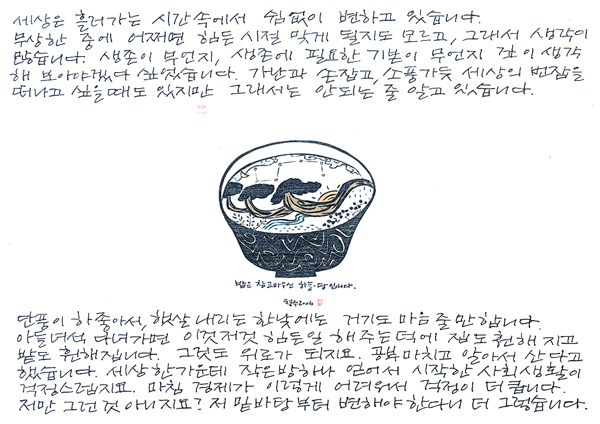 세상은 흘러가는 시간속에서 쉼없이 변하고 있습니다.
무상한 중에 어쩌면 힘든 시절 맞게 될지도 모르고, 그래서 생각이
많습니다. 생존이 무언지, 생존에 필요한 기본이 무언지 같이 생각
해 보아야겠다 싶었습니다. 가난과 손잡고, 소풍가듯 세상의 번잡을
떠나고 싶을때도 있지만 그래서는 안되는 줄 알고 있습니다.
밥은 참 고마우신 하늘·땅입니다.
철수2008
단풍이 하좋아서, 햇살 내리는 한낮에는 거기도 마음 줄만합니다.
아들녀석 다녀가면 이것저것 힘든일 해주는덕에 집도 훤해 지고
밭도 훤해집니다. 그것도 위로가 되지요. 공부마치고 알아서 산다고
했습니다. 세상 한가운데 작은방하나 얻어서 시작한 사회생활이
걱정스럽지요. 마침 경제가 이렇게 어려워서 걱정이 더 큽니다.
저만 그런것 아니지요? 저 밑바탕부터 변해야 한다니 더 그렇습니다.